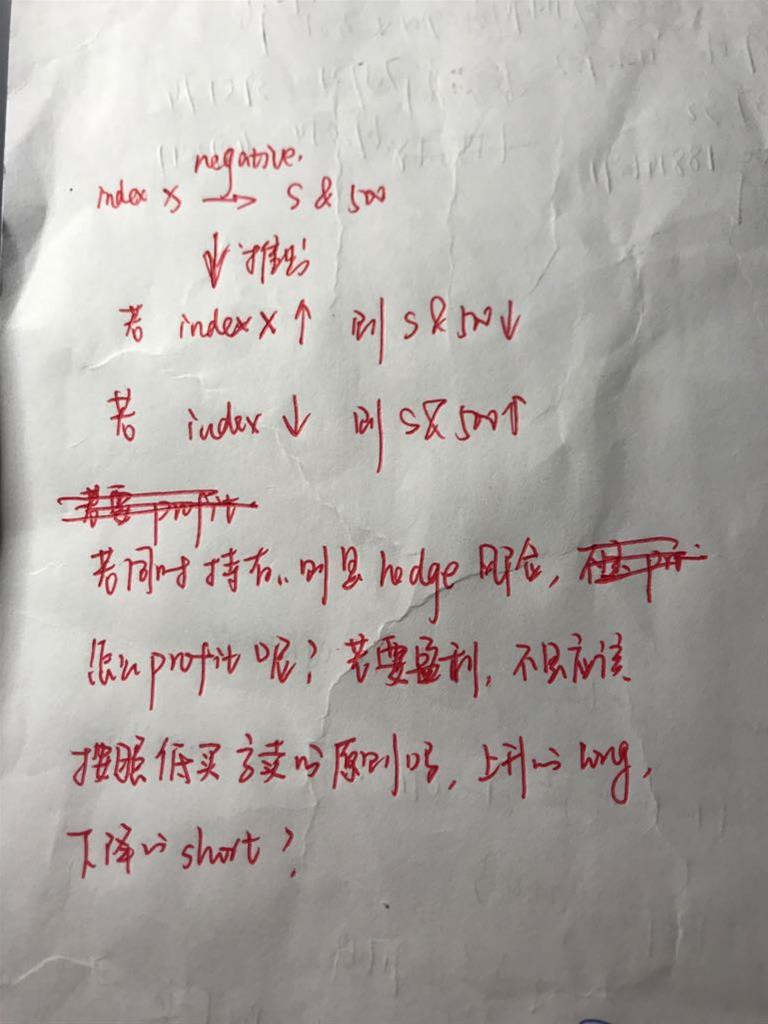 negative.
index X → S & 500
↓ 推出
若 index X ↑ 则 S & 500 ↓
若 index ↓ 则 S & 500 ↑
若要 profit
若同时持有.. 则是 hedge 风险,
怎么 profit 呢? 若要盈利, 不是应该
按照低买高卖的原则吗, 上升的 long,
下降的 short?